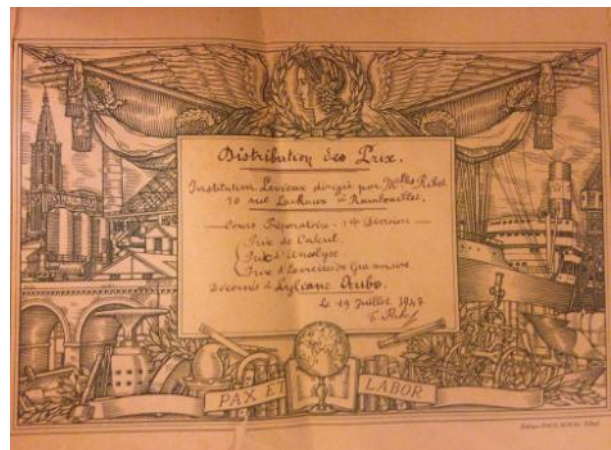 Distribution des Prix.
Institution Lavieux dirigée par Melles Ribot
10 rue Lachaux à Rambouillet.
Cours Préparatoire - 1re Division
Prix de Calcul
Prix d'Analyse
Prix d'Exercices de Grammaire
Décernés à Lyliane Aubo.
Le 19 Juillet 1947
PAX ET LABOR